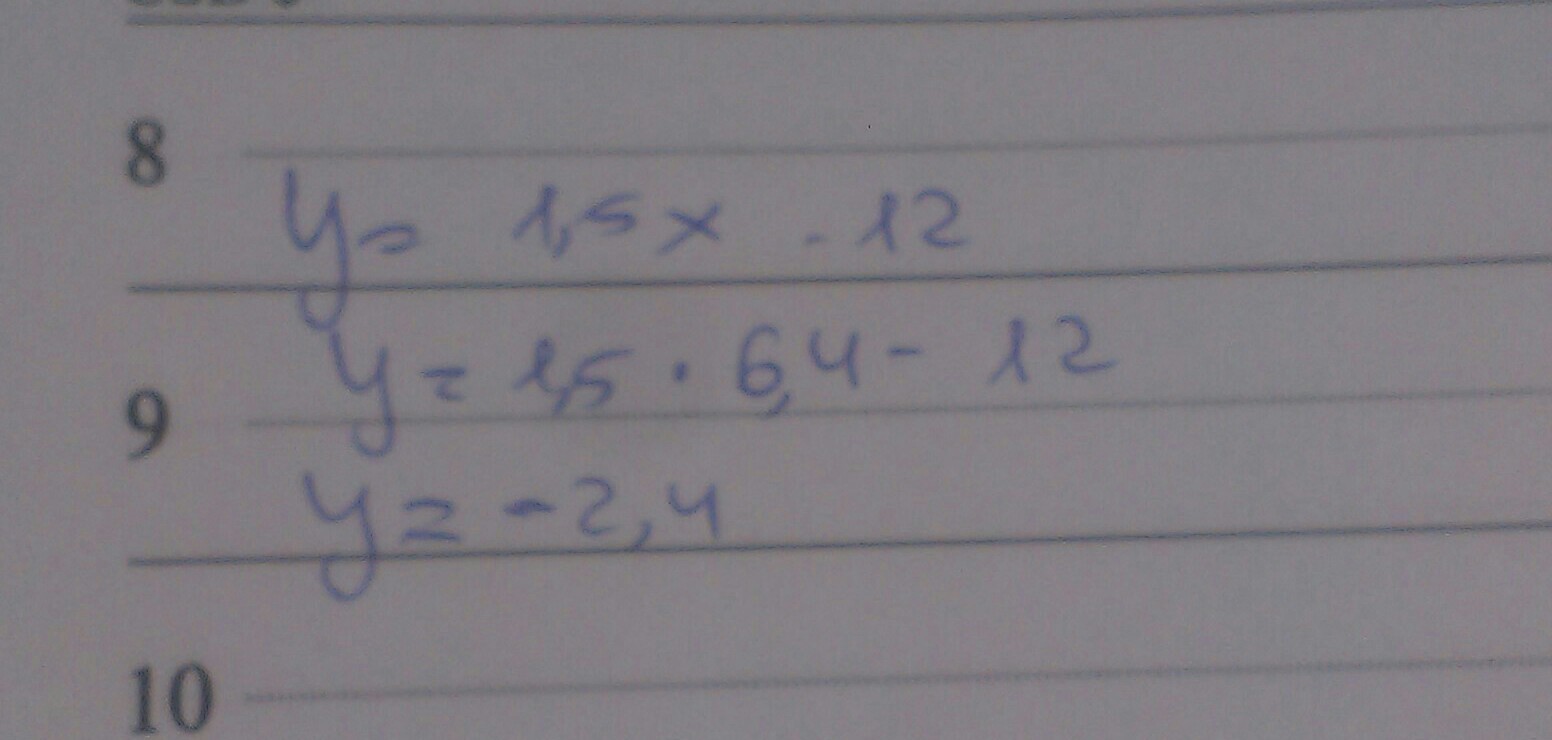 8
y= 1,5x - 12
y = 1,5 · 6,4 - 12
9
y = -2,4
10